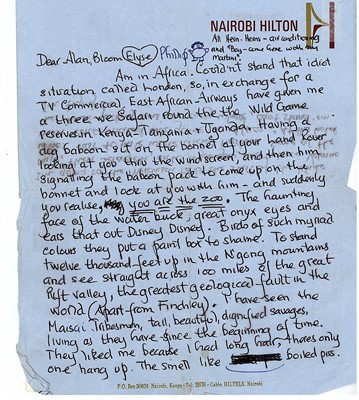 NAIROBI HILTON
All Mem. Items - air conditioning
and "Boy - came Gone with my
martini"
Dear Alan, Bloom Elyse Phillip
Am in Africa. Couldn't stand that idiot
situation called London, so, in exchange for a
TV Commercial, East African Airways have given me
a three wk Safari round the the Wild Game
reserves in Kenya - Tangania - Uganda. Having a
dog baboon sit on the bonnet of your hand Rover
looking at you thru the windscreen, and then him
signalling the baboon pack to come up on the
bonnet and look at you with him - and suddenly
you realise, you are the zoo. The haunting
face of the water buck, great onyx eyes and
ears that out Disney Disney. Birds of such myriad
colours they put a paint box to shame. To stand
twelve thousand feet up in the N'gong mountains
and see straight across 100 miles of the great
Rift valley, the greatest geological fault in the
world (Apart from Finchley). I have seen the
Maisai Tribesmen, tall, beautiful, dignified savages,
living as they have since the beginning of time.
They liked me because I had long hair, theres only
one hang up. The smell like boiled piss.
P.O. Box 30624 Nairobi, Kenya - Tel: - Cable: HILTELS, Nairobi